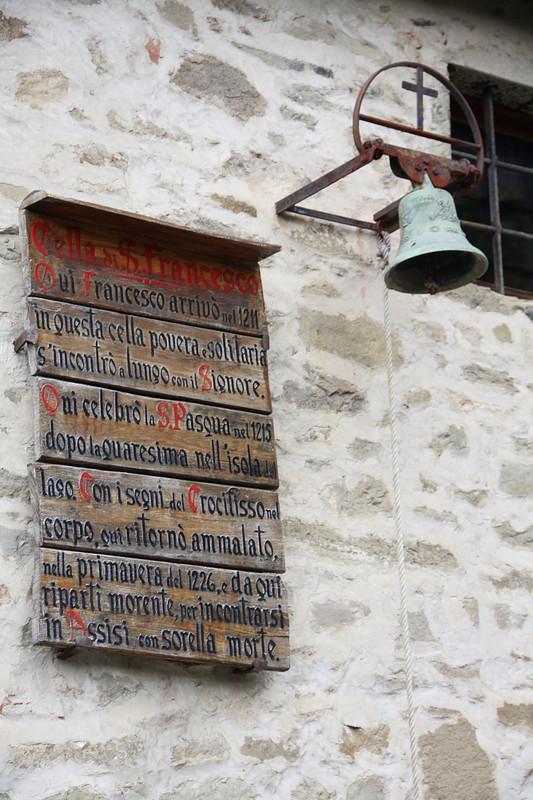 Cella di S. Francesco
Qui Francesco arrivò nel 1211
in questa cella povera e solitaria
s'incontrò a lungo con il Signore.
Qui celebrò la S. Pasqua nel 1215
dopo la quaresima nell'isola del
lago. Con i segni del Crocifisso nel
corpo, qui ritornò ammalato,
nella primavera del 1226, e da qui
ripartì morente, per incontrarsi
in Assisi con sorella morte.